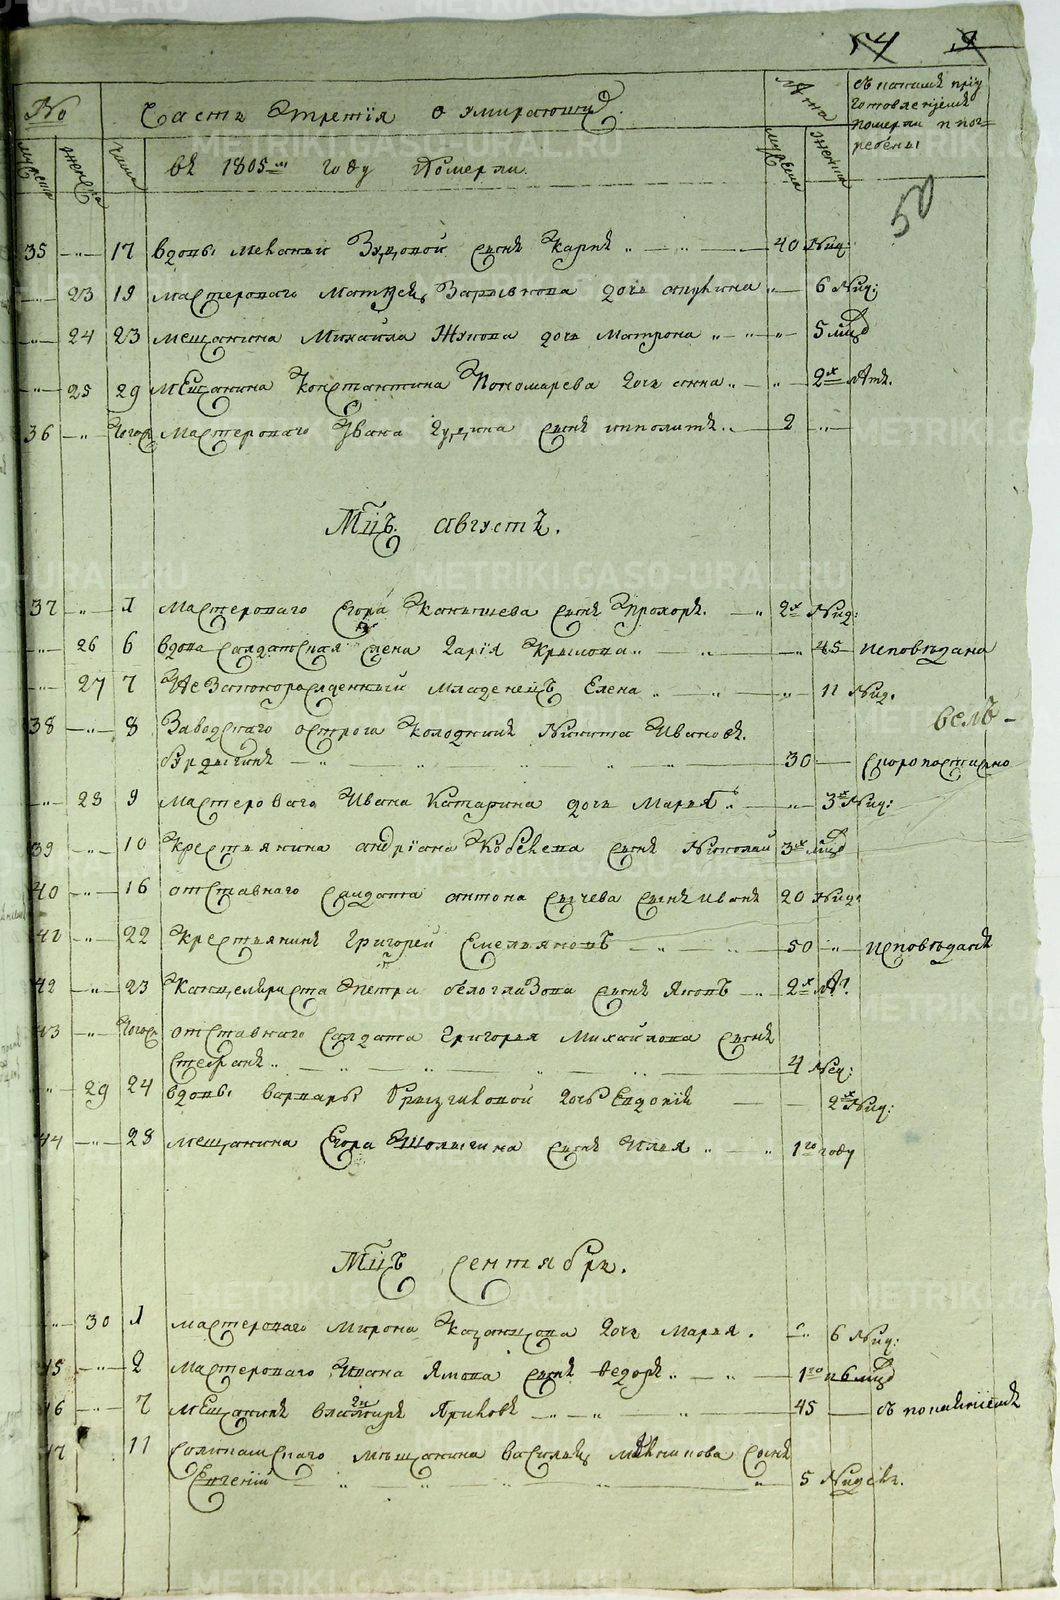 54 9
№ Часть третїя о умирающихъ. Лѣта съ какимъ прїу
готовленїемъ
померли и пог=
ребены
мужеска женска числа въ 1805м году Померли. мужеска женска
50
35 -„- 17 вдовы Меланьи Зуцовой сынъ Карпъ „ 40 Нид:
-„- 23 19 мастероваго Матѳея Зарывнова дочь анукина „ 6 Нид:
-„- 24 23 мещанина Михайла Жукова дочь Матрона „ 5 мцъ
-„- 25 29 мещанина Константина Пономарева дочь анна „ 2х Лѣтъ.
36 -„- тогож мастероваго Ивана сынъ ипполитъ „ 2 -„-
Мцъ августъ.
37 -„- 1 мастероваго Егора Канышева сынъ Прохоръ. 2х Нид:
-„- 26 6 вдова салдатская жена Дарїя Крылова „ 45 исповѣдана
-„- 27 7 Незаконорожденный младенецъ Елена „ 11 Нид.
38 -„- 8 Заводскаго острога колодникъ Никита Ивановъ вель-
Бурдыгинъ 30 скоропостижно
-„- 28 9 мастероваго Ивана Катарина дочь Марья „ 3х Нид:
39 -„- 10 Крестьянина андрїана Кобелева сынъ Николай 3х мцъ
40 -„- 16 отставнаго салдата антона Сычева сынъ иванъ 20 Нид:
41 -„- 22 Крестьянинъ Григорей Емельяновъ 50 „ исповѣданъ
42 -„- 23 Канцеляриста Петра бѣлоглазова сынъ Яковъ 2х лѣ:
43 -„- тогож отставнаго салдата григорья михайлова сынъ
стефанъ „ 4 Нед:
„ 29 24 вдовы варвары дочь Евдокїя 2х Нид:
44 -„- 28 мещанина Егора Шолыгина сынъ Илья „ 1го году
Мцъ сентябрь.
-„- 30 1 мастероваго мирона Казанцова дочь Марья. „ 6 Нид:
45 -„- 2 мастероваго Ивана Ямова сынъ ѳедоръ „ 1го и 6 мцъ
46 -„- 7 мещанинъ владимиръ Ариковъ 45 съ покаянїемъ
47 11 мѣщанина василья сынъ
Евгенїй 5 Нидель.